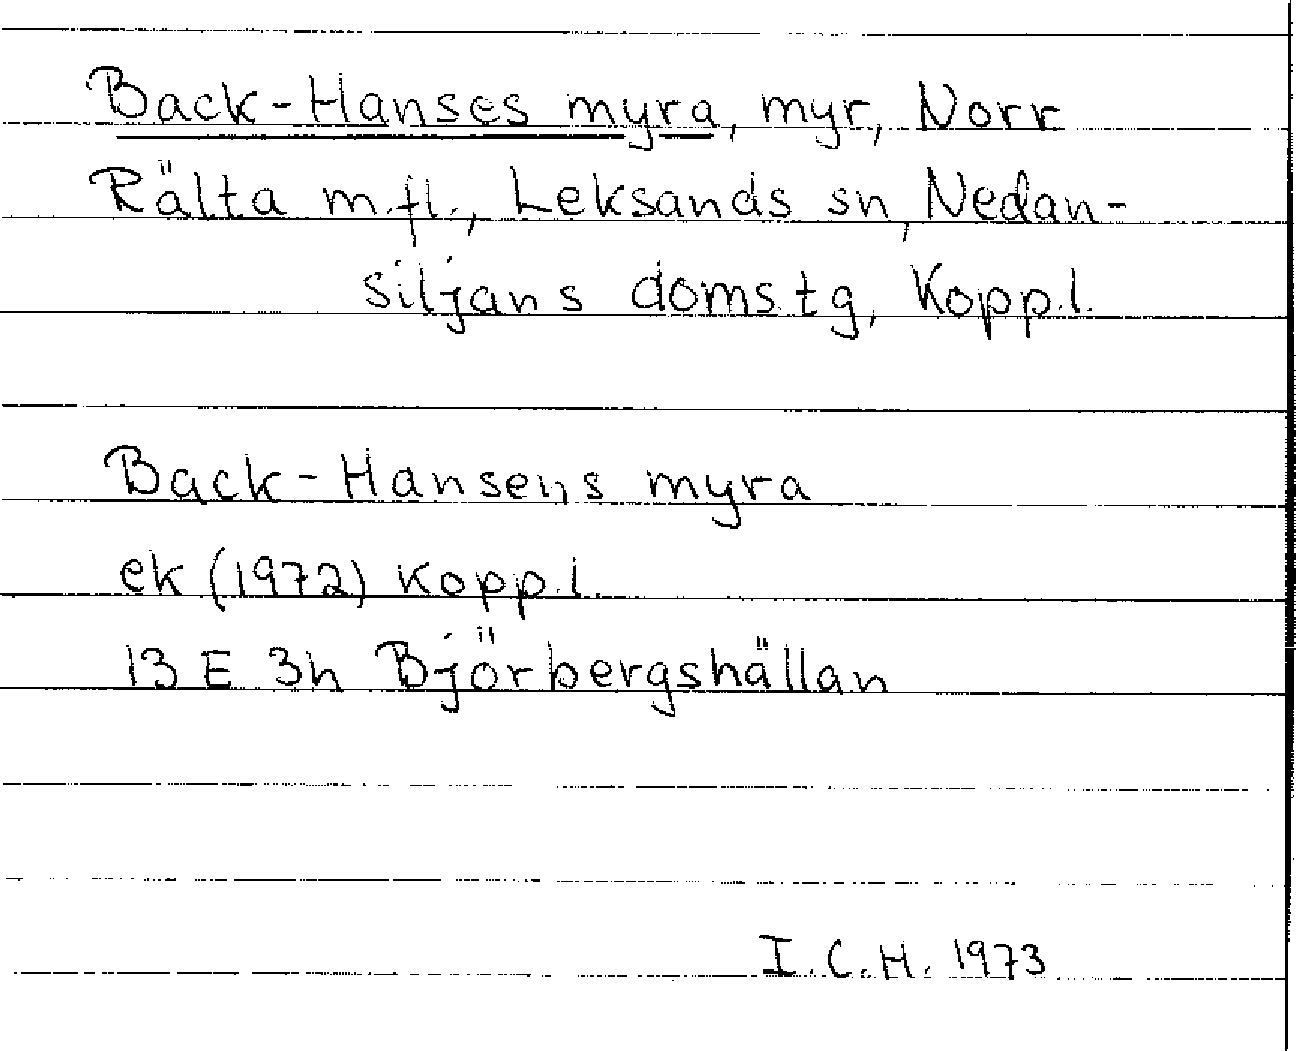 Back-Hanses myra, myr, Norr
Rälta m.fl., Leksands sn, Nedan-
siljans domstg, Kopp.l.
Back-Hansens myra
ek (1972) Kopp.l.
13 E 3h Björbergshällan
I.C.H. 1973